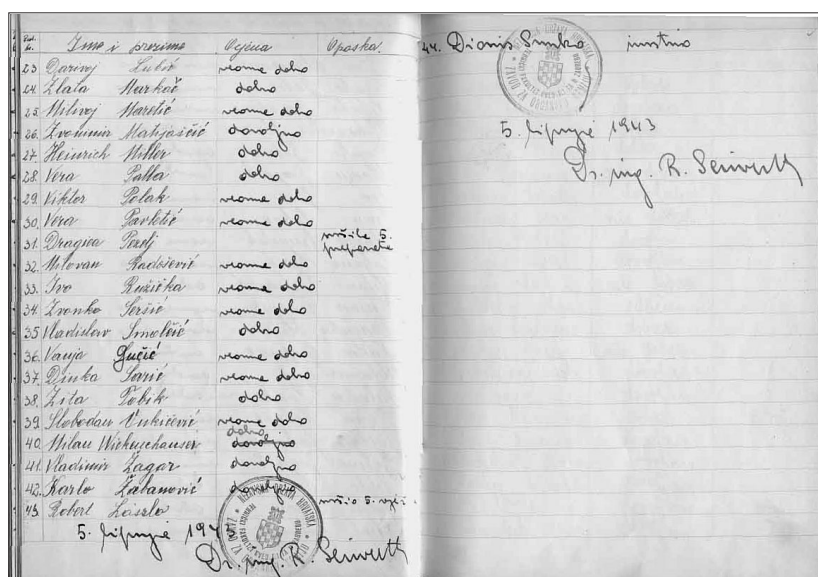 Ime i prezime Ocjena Opaska.
23 Darivoj Lubić veoma dobro
24. Zlata Markač dobro
25. Milivoj Maretić veoma dobro
26. Zvonimir Matijaščić dovoljno
27. Heinrich Miller dobro
28. Vera Palta dobro
29. Viktor Polak veoma dobro
30. Vera Pavletić veoma dobro
31. Dragica
32. Milovan Radošević veoma dobro
33. Ivo Ružička veoma dobro
34. Zvonko Seršić veoma dobro
35 Vladislav Smolčić dobro
36. Vanja Gučić veoma dobro
37. Dinka Sarić veoma dobro
38. Zita Tobik dobro
39. Slobodan Vukićević veoma dobro
40. Milan dobro dovoljno
41. Vladimir Žagar dovoljno
42. Karlo
43. Robert László
5. lipnja
Dr. ing. R. Seiwerth
44. Dionis Sunko
NEZAVISNA DRŽAVA HRVATSKA
5. lipnja 1943
Dr. ing. R. Seiwerth